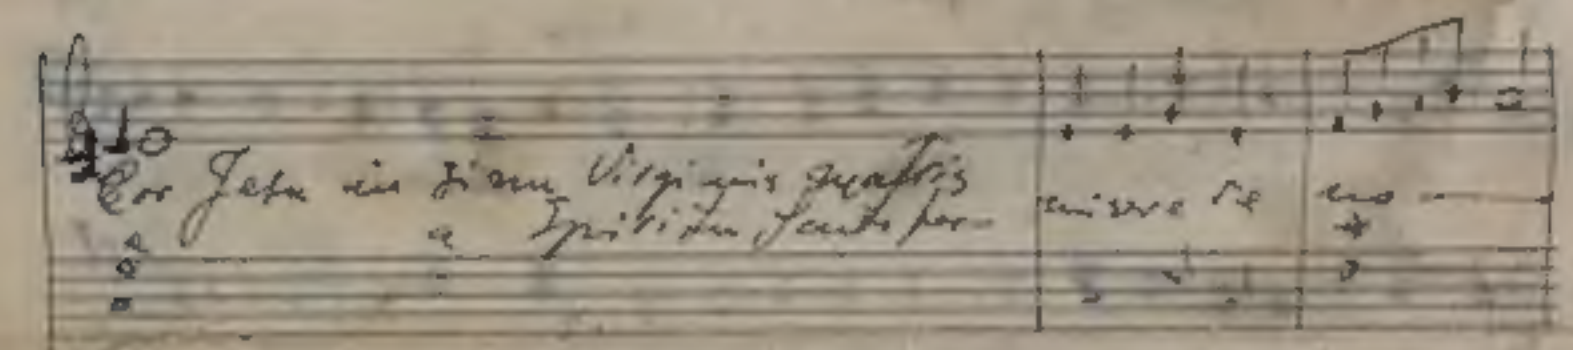 Cor Jesu in sinu Virginis Matris misere re no
a Spiritu Sancto for-